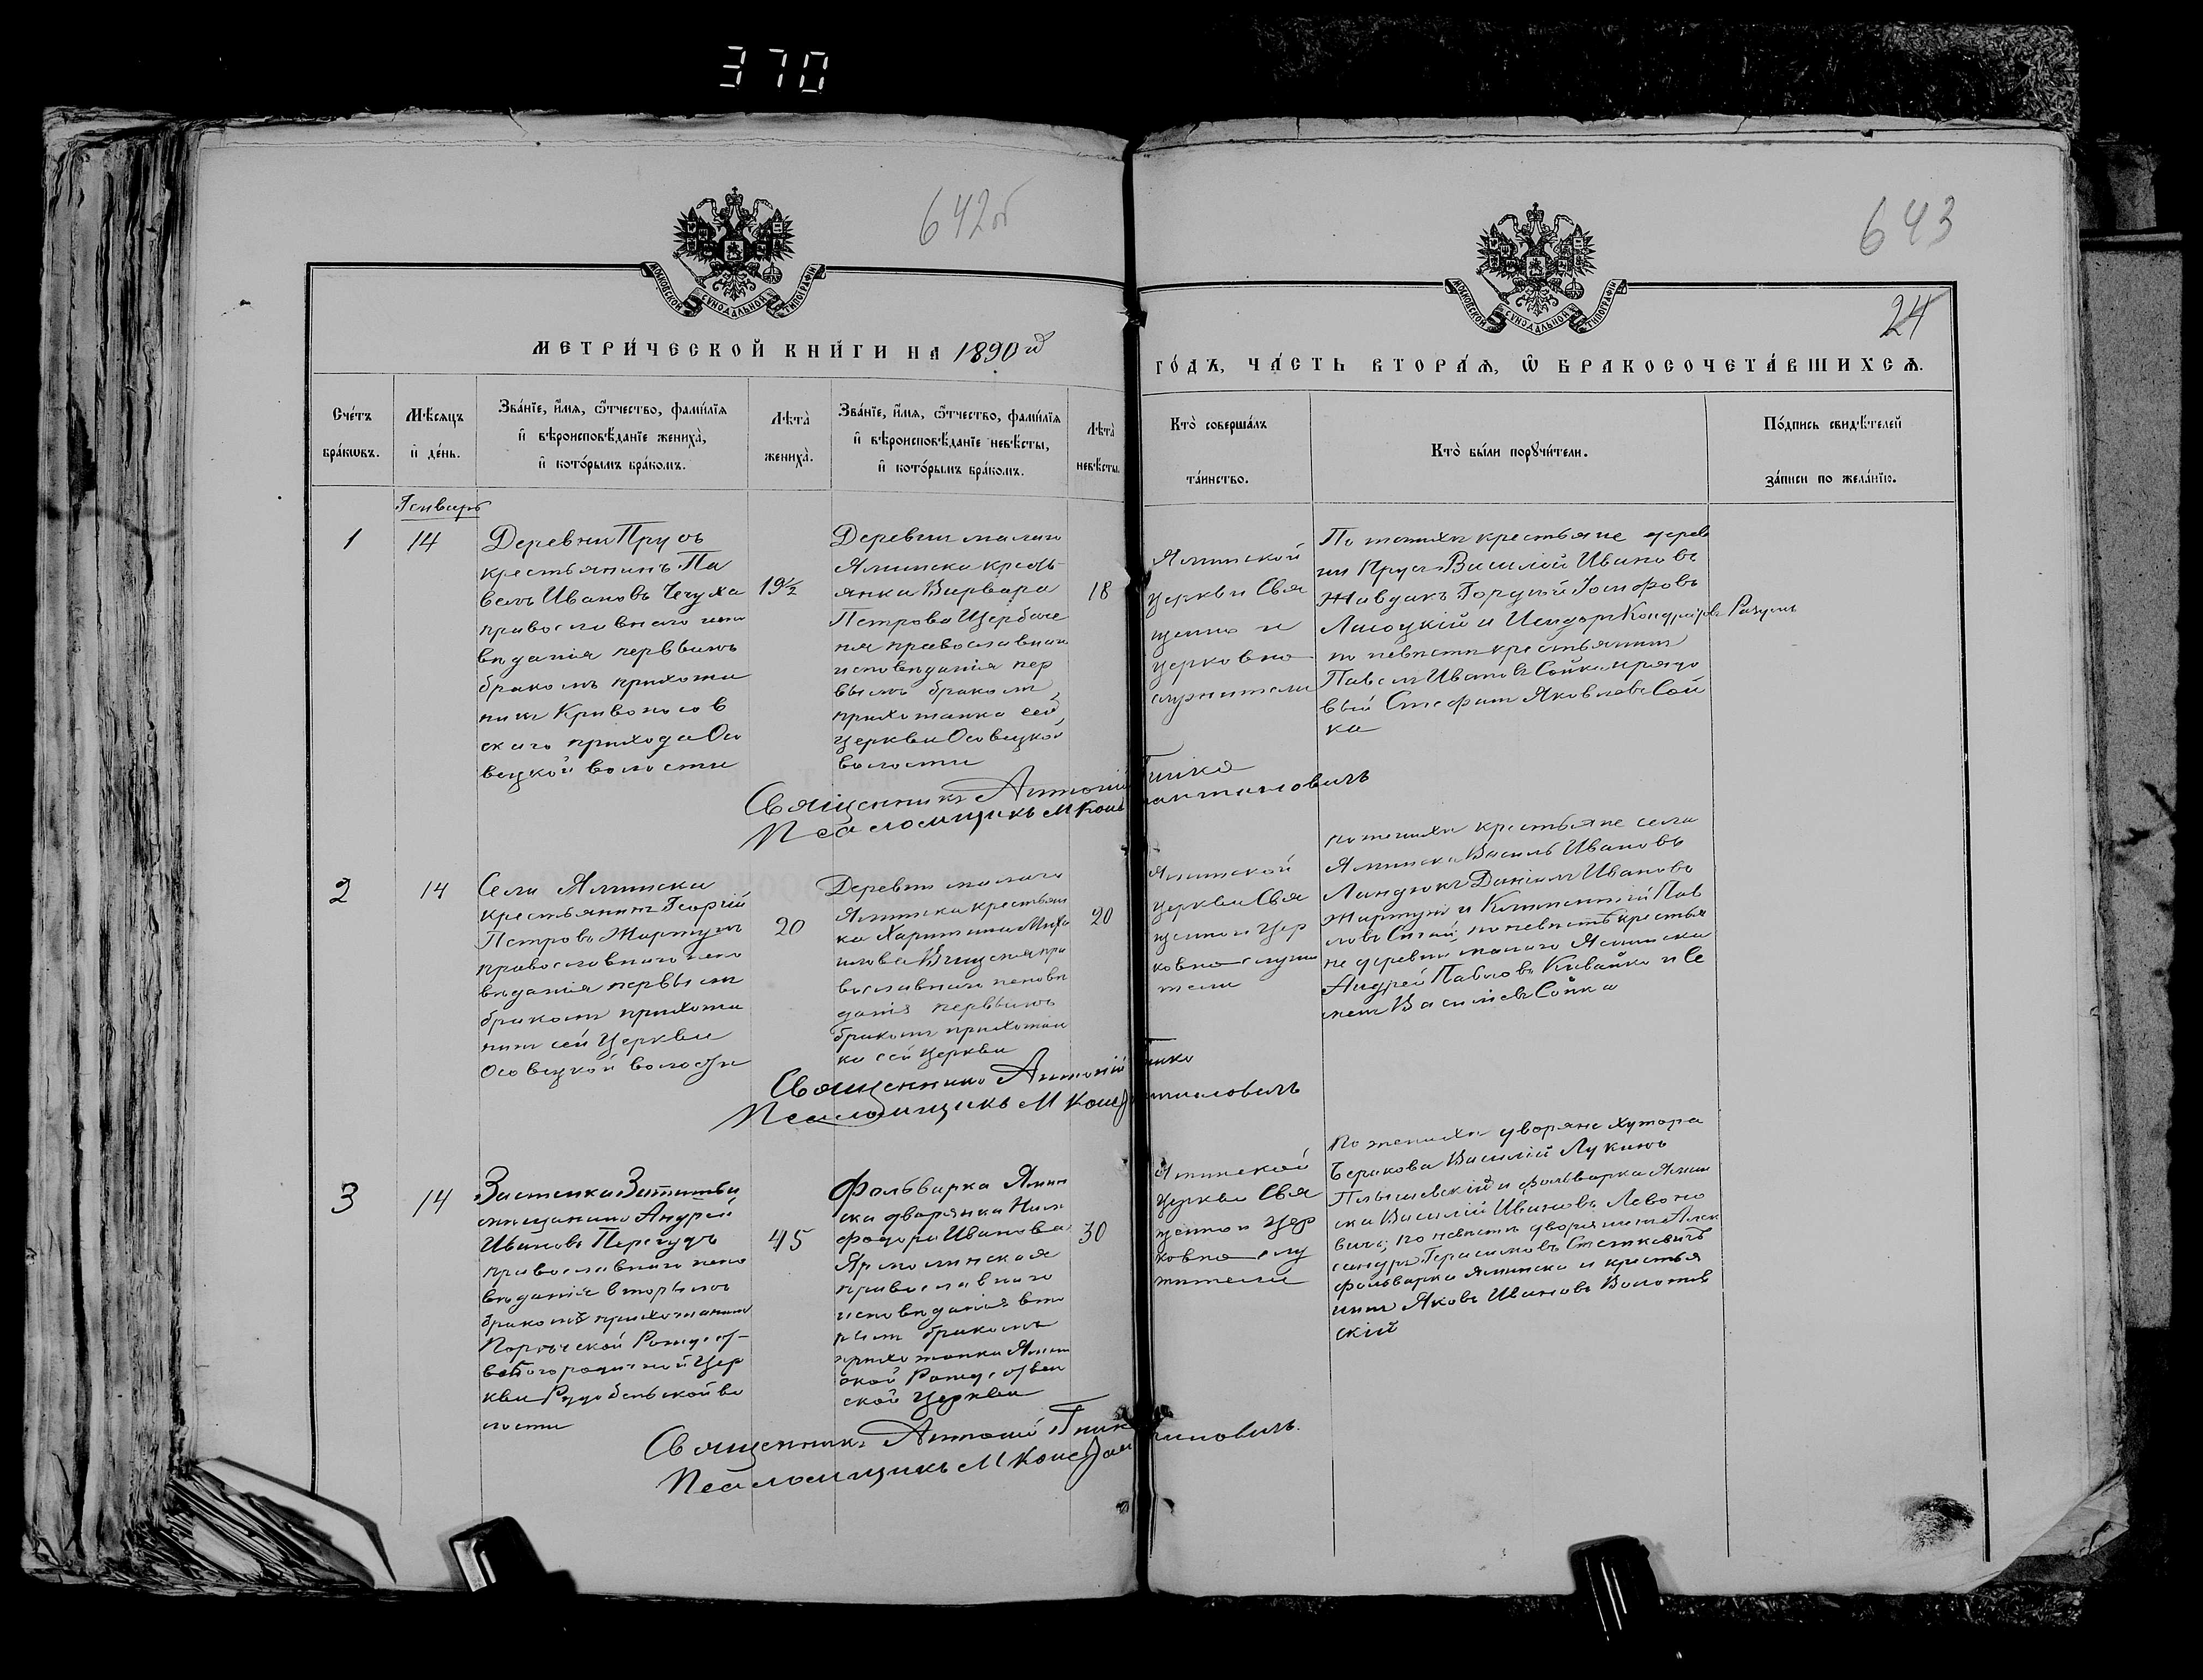 370
642об
643
24
МОСКОВСКОЙ СѴНОДАЛЬНОЙ ТИПОГРАФІИ
МОСКОВСКОЙ СѴНОДАЛЬНОЙ ТИПОГРАФІИ
МЕТРИ́ЧЕСКОЙ КНИ́ГИ НА 1890 й
ГО́ДЪ, ЧА́СТЬ ВТОРА́Ѧ, Ѡ҆ БРАКОСОЧЕТА́ВШИХСѦ.
Сче́тъ
бра́кѡвъ.
Мѣ́сѧцъ
и҆ де́нь.
Зва́нїе, и҆́мѧ, ѻ҆́тчество, фамѝлїѧ
и҆ вѣроисповѣ́данїе женихà,
и҆ кото́рымъ бра́комъ.
Лѣ́та̀
женихà.
Зва́нїе, и҆́мѧ, ѻ҆́тчество, фамѝлїѧ
и҆ вѣроисповѣ́данїе невѣ́сты,
и҆ кото́рымъ бра́комъ.
Лѣ́та̀
невѣ́сты.
Кто̀ соверша́лъ
та́инство.
Кто̀ бы́ли порꙋчи́тели.
По́дпись свидѣ́телей
за́писи по жела́нїю.
Генварь
1
14
Деревни Прусъ
крестьянинъ Па
велъ Ивановъ Чечуха
православнаго испо
вѣданія первымъ
бракомъ прихожа
нинъ Кривоносов
скаго прихода Осо
вецкой волости
19½
Деревни малаго
Яминска кресть
янка Варвара
Петрова Щербаче
ня православнаго
исповѣданія пер
вымъ бракомъ,
прихожанка сей,
церкви Осовецкой
волости
18
Яминской
церкви Свя
щенно и
церковно
служители
По женихѣ крестьяне дерев
ни Прусъ Василій Ивановъ
Жавдакъ Гордѣй Іосифовъ
Лисоцкій и Исидоръ Кондратовъ
по невѣстѣ крестьянинъ
Павелъ Ивановъ Сойка и рядо
вый Стефанъ Яковлевъ Сой
ка
Священникъ Антоній Гинко
Псаломщикъ М Константиновичъ
2
14
Села Яминска
крестьянинъ Георгій
Петровъ Жартунъ
православнаго испо
вѣданія первымъ
бракомъ прихожа
нинъ сей Церкви
Осовецкой волости
20
Деревни малаго
Яминска крестьян
ка Харитина Миха
илова православнаго исповѣ
данія первымъ
бракомъ прихожан
ка сей церкви
20
Яминской
церкви Свя
щенно и Цер
ковнослужи
тели
по женихѣ крестьяне села
Яминска Василь Ивановъ
Ландюкъ Даніилъ Ивановъ
Жартунъ и Климентій Пав
ловъ по невѣстѣ крестья
не деревни малаго Яминска
Андрей Павловъ Кивайко и Се
менъ Василіевъ Сойка
Священникъ Антоній Гинко
Псаломщикъ М Константиновичъ
3
14
Застенка
мѣщанинъ Андрей
Ивановъ Перегудъ
православнаго испо
вѣданія вторымъ
бракомъ прихожанинъ
Порѣчской Рождест
во Богородичной Цер
кви Рудобельской во
лости
45
Фольварка Ямин
ска дворянка Ним
фодора Иванова
Ярмолинская
православнаго
исповѣданія вто
рымъ бракомъ
прихожанка Ямин
ской Рождествен
ской Церкви
30
Яминской
церкви Свя
щенно и Цер
ковно слу
жители
По женихѣ дворяне хутора
Беракова Василій Лукинъ
Пльшевскій и фольварка Ямин
ска Василій Ивановъ Левоно
вичъ; по невѣстѣ дворянинъ Алек
сандръ Герасимовъ Стенкевичъ
фольварка Яминска и крестья
нинъ Яковъ Ивановъ Волотов
скій
Священникъ Антоній Гинко
Псаломщикъ М Константиновичъ.